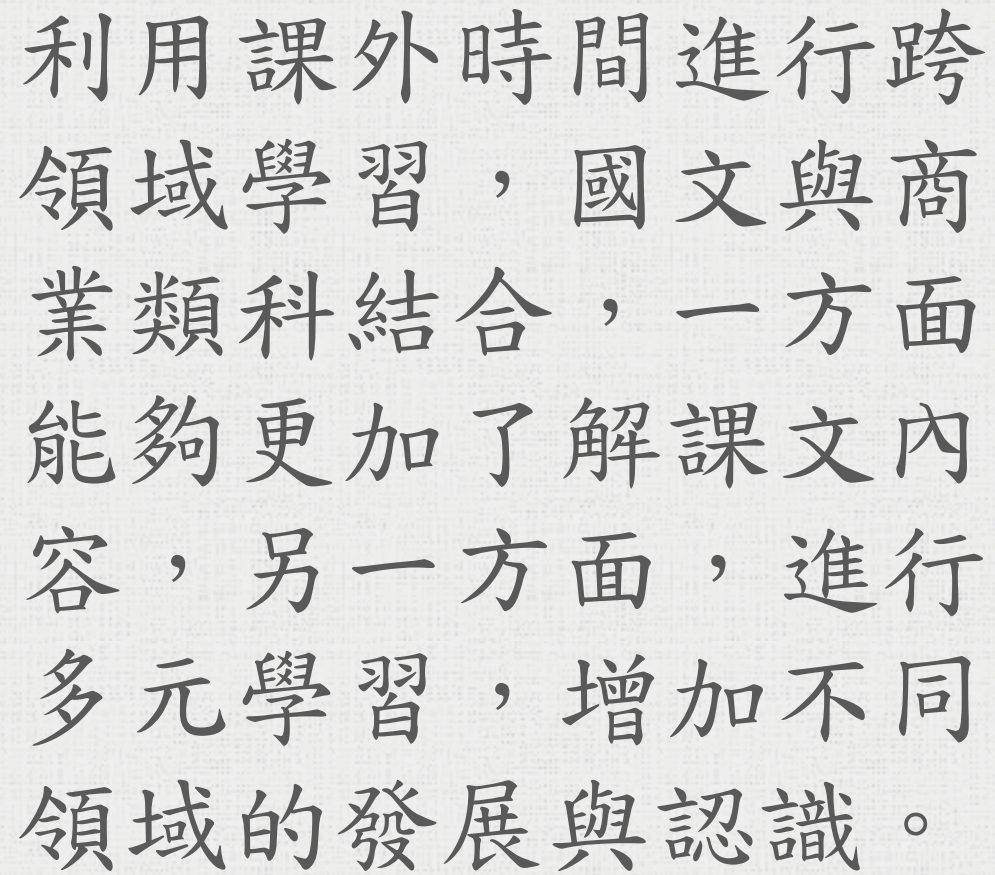 利用課外時間進行跨
領域學習，國文與商
業類科結合，一方面
能夠更加了解課文內
容，另一方面，進行
多元學習，增加不同
領域的發展與認識。